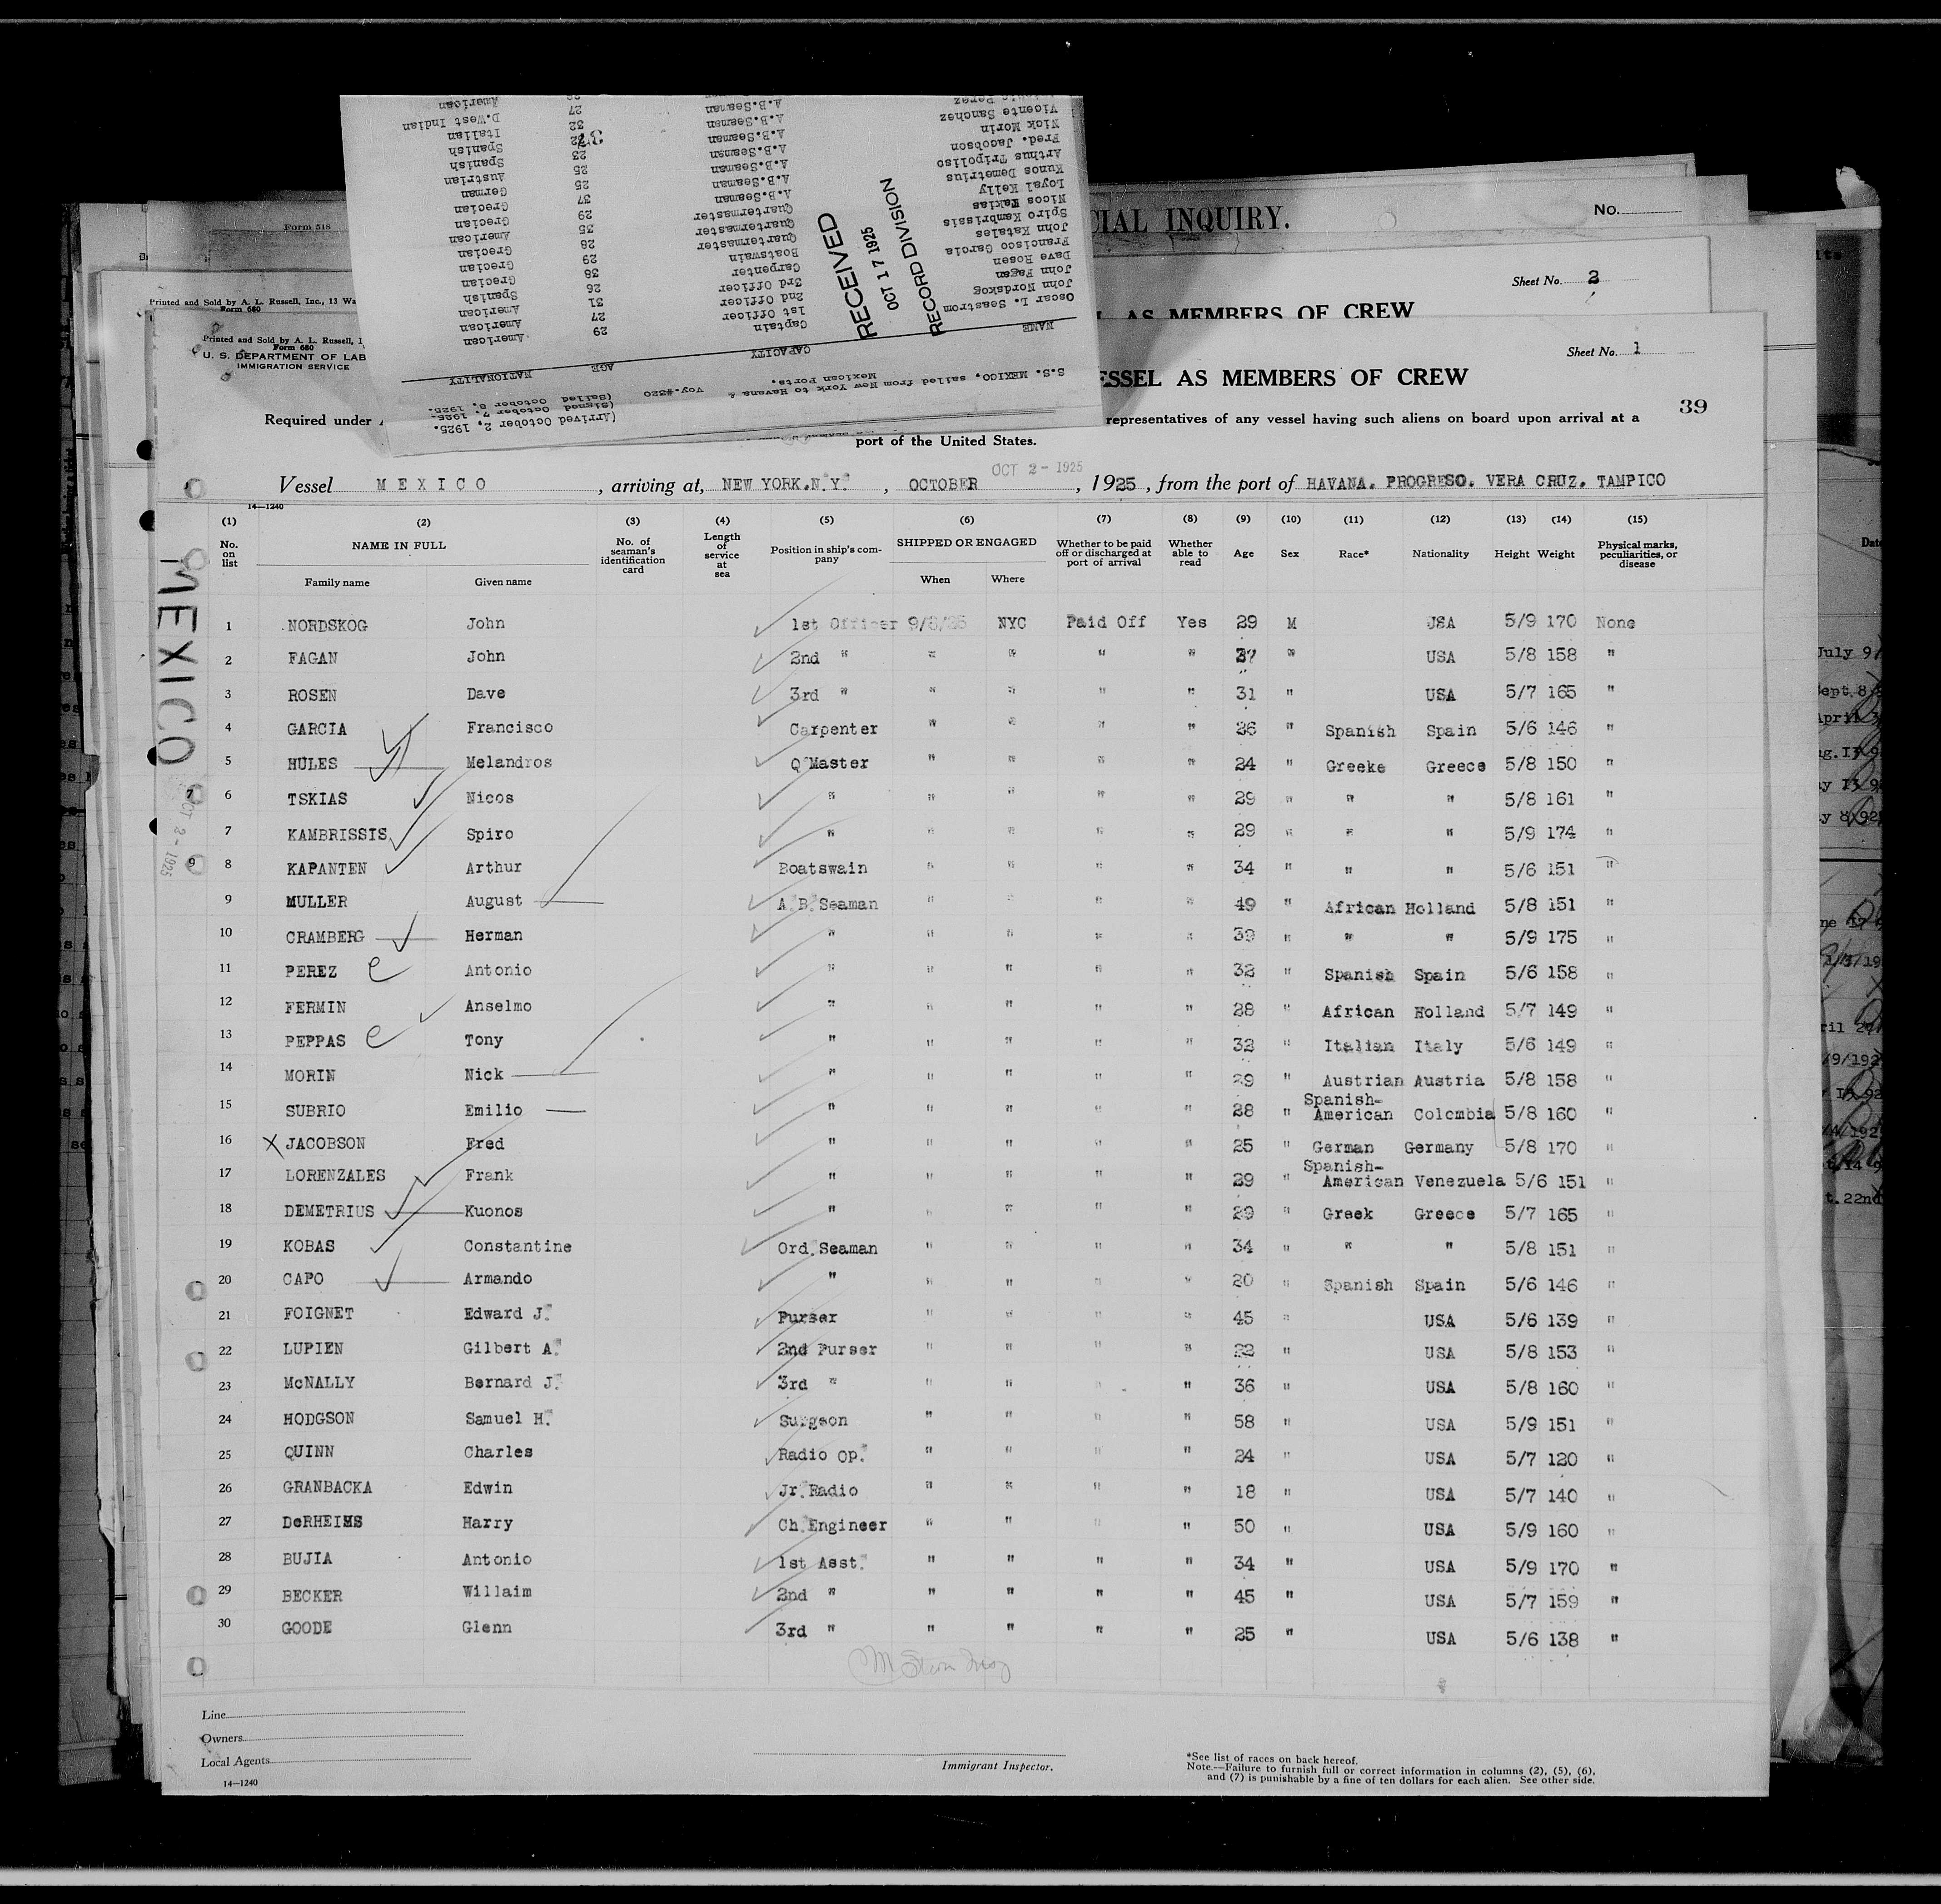 Form 518
CIAL INQUIRY.
No.
Printed and Sold by A. L. Russell, Inc., 13 Wa
Form 680
Sheet No. 2
AS MEMBERS OF CREW
(Arrived October 2, 1925.
(Signed October 7, 1925.
(Sailed October 8, 1925.
S.S. MEXICO, sailed from New York to Havana & Voy.#320
Mexican Ports.
NAME CAPACITY AGE NATIONALITY
Oscar L. Seastrom Captain 29 American
John Nordskog 1st Officer 27 American
John Fagan 2nd Officer 31 American
Dave Rosen 3rd Officer 26 Spanish
Francisco Garcia Carpenter 36 Grecian
John Katales Boatswain 29 Grecian
Spiro Kambrissis Quartermaster 28 American
Nicos Quartermaster 35 Grecian
Loyal Kelly Quartermaster 29 Grecian
Kunos Demetrius A.B.Seaman 37 German
Arthus Tripoliso A.B.Seaman 25 Austrian
Fred. Jacobson A.B.Seaman 25 Spanish
Nick Morin A.B.Seaman 23 Spanish
Vicente Sanchez A.B.Seaman Italian
Perez A.B.Seaman 32 D.West Indian
A.B.Seaman 27 American
RECEIVED
OCT 17 1925
RECORD DIVISION
Printed and Sold by A. L. Russell, I
Form 680
U. S. DEPARTMENT OF LAB
IMMIGRATION SERVICE
Sheet No. 1
ESSEL AS MEMBERS OF CREW
39
Required under
representatives of any vessel having such aliens on board upon arrival at a
port of the United States.
OCT 2 - 1925
Vessel MEXICO, arriving at, NEW YORK.N.Y., OCTOBER, 1925, from the port of HAVANA. PROGRESO. VERA CRUZ. TAMPICO
14—1240
(1) (2) (3) (4) (5) (6) (7) (8) (9) (10) (11) (12) (13) (14) (15)
No. on list NAME IN FULL Family name Given name No. of seaman's identification card Length of service at sea Position in ship's company SHIPPED OR ENGAGED When Where Whether to be paid off or discharged at port of arrival Whether able to read Age Sex Race* Nationality Height Weight Physical marks, peculiarities, or disease
MEXICO
OCT 2 - 1925
1 NORDSKOG John 1st Officer 9/8/25 NYC Paid Off Yes 29 M USA 5/9 170 None
2 FAGAN John 2nd " " " " " 27 " USA 5/8 158 "
3 ROSEN Dave 3rd " " " " " 31 " USA 5/7 165 "
4 GARCIA Francisco Carpenter " " " " 26 " Spanish Spain 5/6 146 "
5 HULES Melandros Q'Master " " " " 24 " Greeke Greece 5/8 150 "
6 TSKIAS Nicos " " " " " 29 " " " 5/8 161 "
7 KAMBRISSIS Spiro " " " " " 29 " " " 5/9 174 "
8 KAPANTEN Arthur Boatswain " " " " 34 " " " 5/6 151 "
9 MULLER August A.B.Seaman " " " " 49 " African Holland 5/8 151 "
10 CRAMBERG Herman " " " " " 39 " " " 5/9 175 "
11 PEREZ Antonio " " " " " 32 " Spanish Spain 5/6 158 "
12 FERMIN Anselmo " " " " " 28 " African Holland 5/7 149 "
13 PEPPAS Tony " " " " " 32 " Italian Italy 5/6 149 "
14 MORIN Nick " " " " " 29 " Austrian Austria 5/8 158 "
15 SUBRIO Emilio " " " " " 28 " Spanish-American Colombia 5/8 160 "
16 X JACOBSON Fred " " " " " 25 " German Germany 5/8 170 "
17 LORENZALES Frank " " " " " 29 " Spanish-American Venezuela 5/6 151 "
18 DEMETRIUS Kuonos " " " " " 29 " Greek Greece 5/7 165 "
19 KOBAS Constantine Ord.Seaman " " " " 34 " " " 5/8 151 "
20 CAPO Armando " " " " " 20 " Spanish Spain 5/6 146 "
21 FOIGNET Edward J. Purser " " " " 45 " USA 5/6 139 "
22 LUPIEN Gilbert A. 2nd Purser " " " " 22 " USA 5/8 153 "
23 McNALLY Bernard J. 3rd " " " " " 36 " USA 5/8 160 "
24 HODGSON Samuel H. Surgeon " " " " 58 " USA 5/9 151 "
25 QUINN Charles Radio Op. " " " " 24 " USA 5/7 120 "
26 GRANBACKA Edwin Jr.Radio " " " " 18 " USA 5/7 140 "
27 DeRHEIMS Harry Ch.Engineer " " " " 50 " USA 5/9 160 "
28 BUJIA Antonio 1st Asst. " " " " 34 " USA 5/9 170 "
29 BECKER Willaim 2nd " " " " " 45 " USA 5/7 159 "
30 GOODE Glenn 3rd " " " " " 25 " USA 5/6 138 "
Line
Owners
Local Agents
14—1240
Immigrant Inspector.
*See list of races on back hereof.
Note.—Failure to furnish full or correct information in columns (2), (5), (6),
and (7) is punishable by a fine of ten dollars for each alien. See other side.